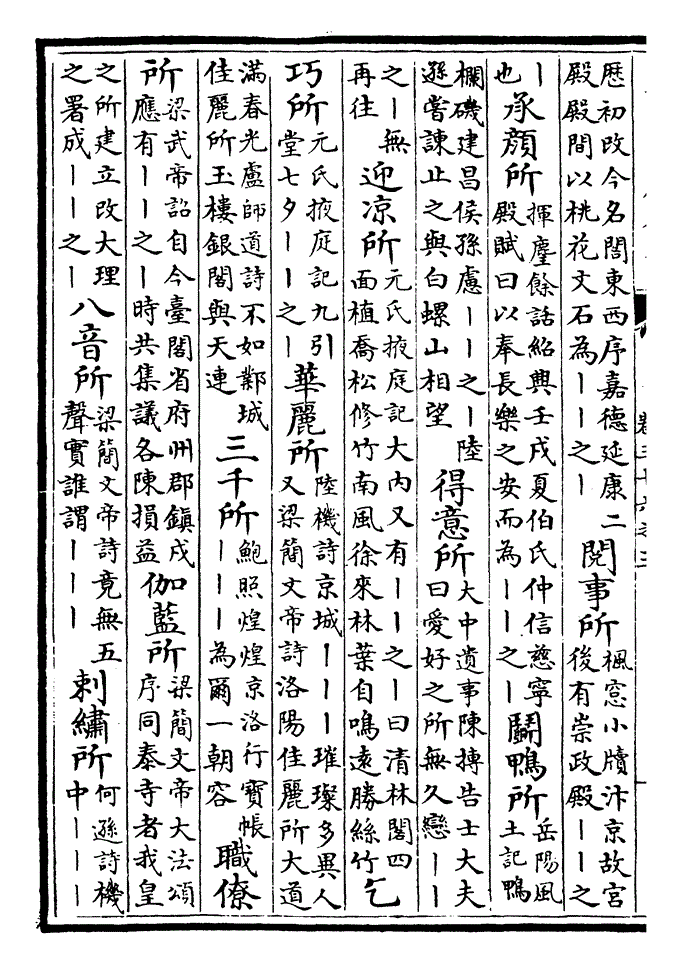 歷初改今名閤東西序嘉德延康二殿殿間以桃花文石為丨丨之丨閱事所楓窓小牘汴京故宮後有崇政殿丨丨之
丨也承顏所揮麈餘話紹興壬戌夏伯氏仲信慈寧殿賦曰以奉長樂之安而為丨丨之丨鬭鴨所岳陽風土記鴨
欄磯建昌侯孫慮丨丨之丨陸遜嘗諫止之與白螺山相望得意所大中遺事陳摶告士大夫曰愛好之所無久戀丨丨
之丨無再往迎凉所元氏掖庭記大内又有丨丨之丨曰清林閣四面植喬松修竹南風徐來林葉自鳴遠勝絲竹乞
巧所元氏掖庭記九引堂七夕丨丨之丨華麗所陸機詩京城丨丨丨璀璨多異人又梁簡文帝詩洛陽佳麗所大道
滿春光盧師道詩不如鄴城佳麗所玉樓銀閣與天連三千所鮑照煌煌京洛行寶帳丨丨丨為爾一朝容職僚
所梁武帝詔自今臺閣省府州郡鎮戍應有丨丨之丨時共集議各陳損益伽藍所梁簡文帝大法頌序同泰寺者我皇
之所建立改大理之署成丨丨之丨八音所梁簡文帝詩竟無五聲實誰謂丨丨丨刺繡所何遜詩機中丨丨丨